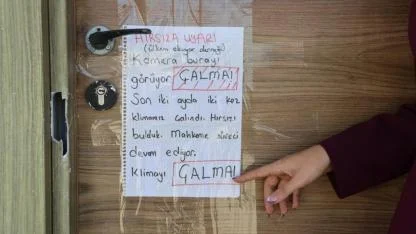 HIRSIZA UYARI
(ülkem okuyor derneği)
Kamera burayı
görüyor. ÇALMA!
Son iki ayda iki kez
klimamız çalındı. Hırsızı
bulduk. Mahkeme süreci
devam ediyor.
Klimayı ÇALMA!